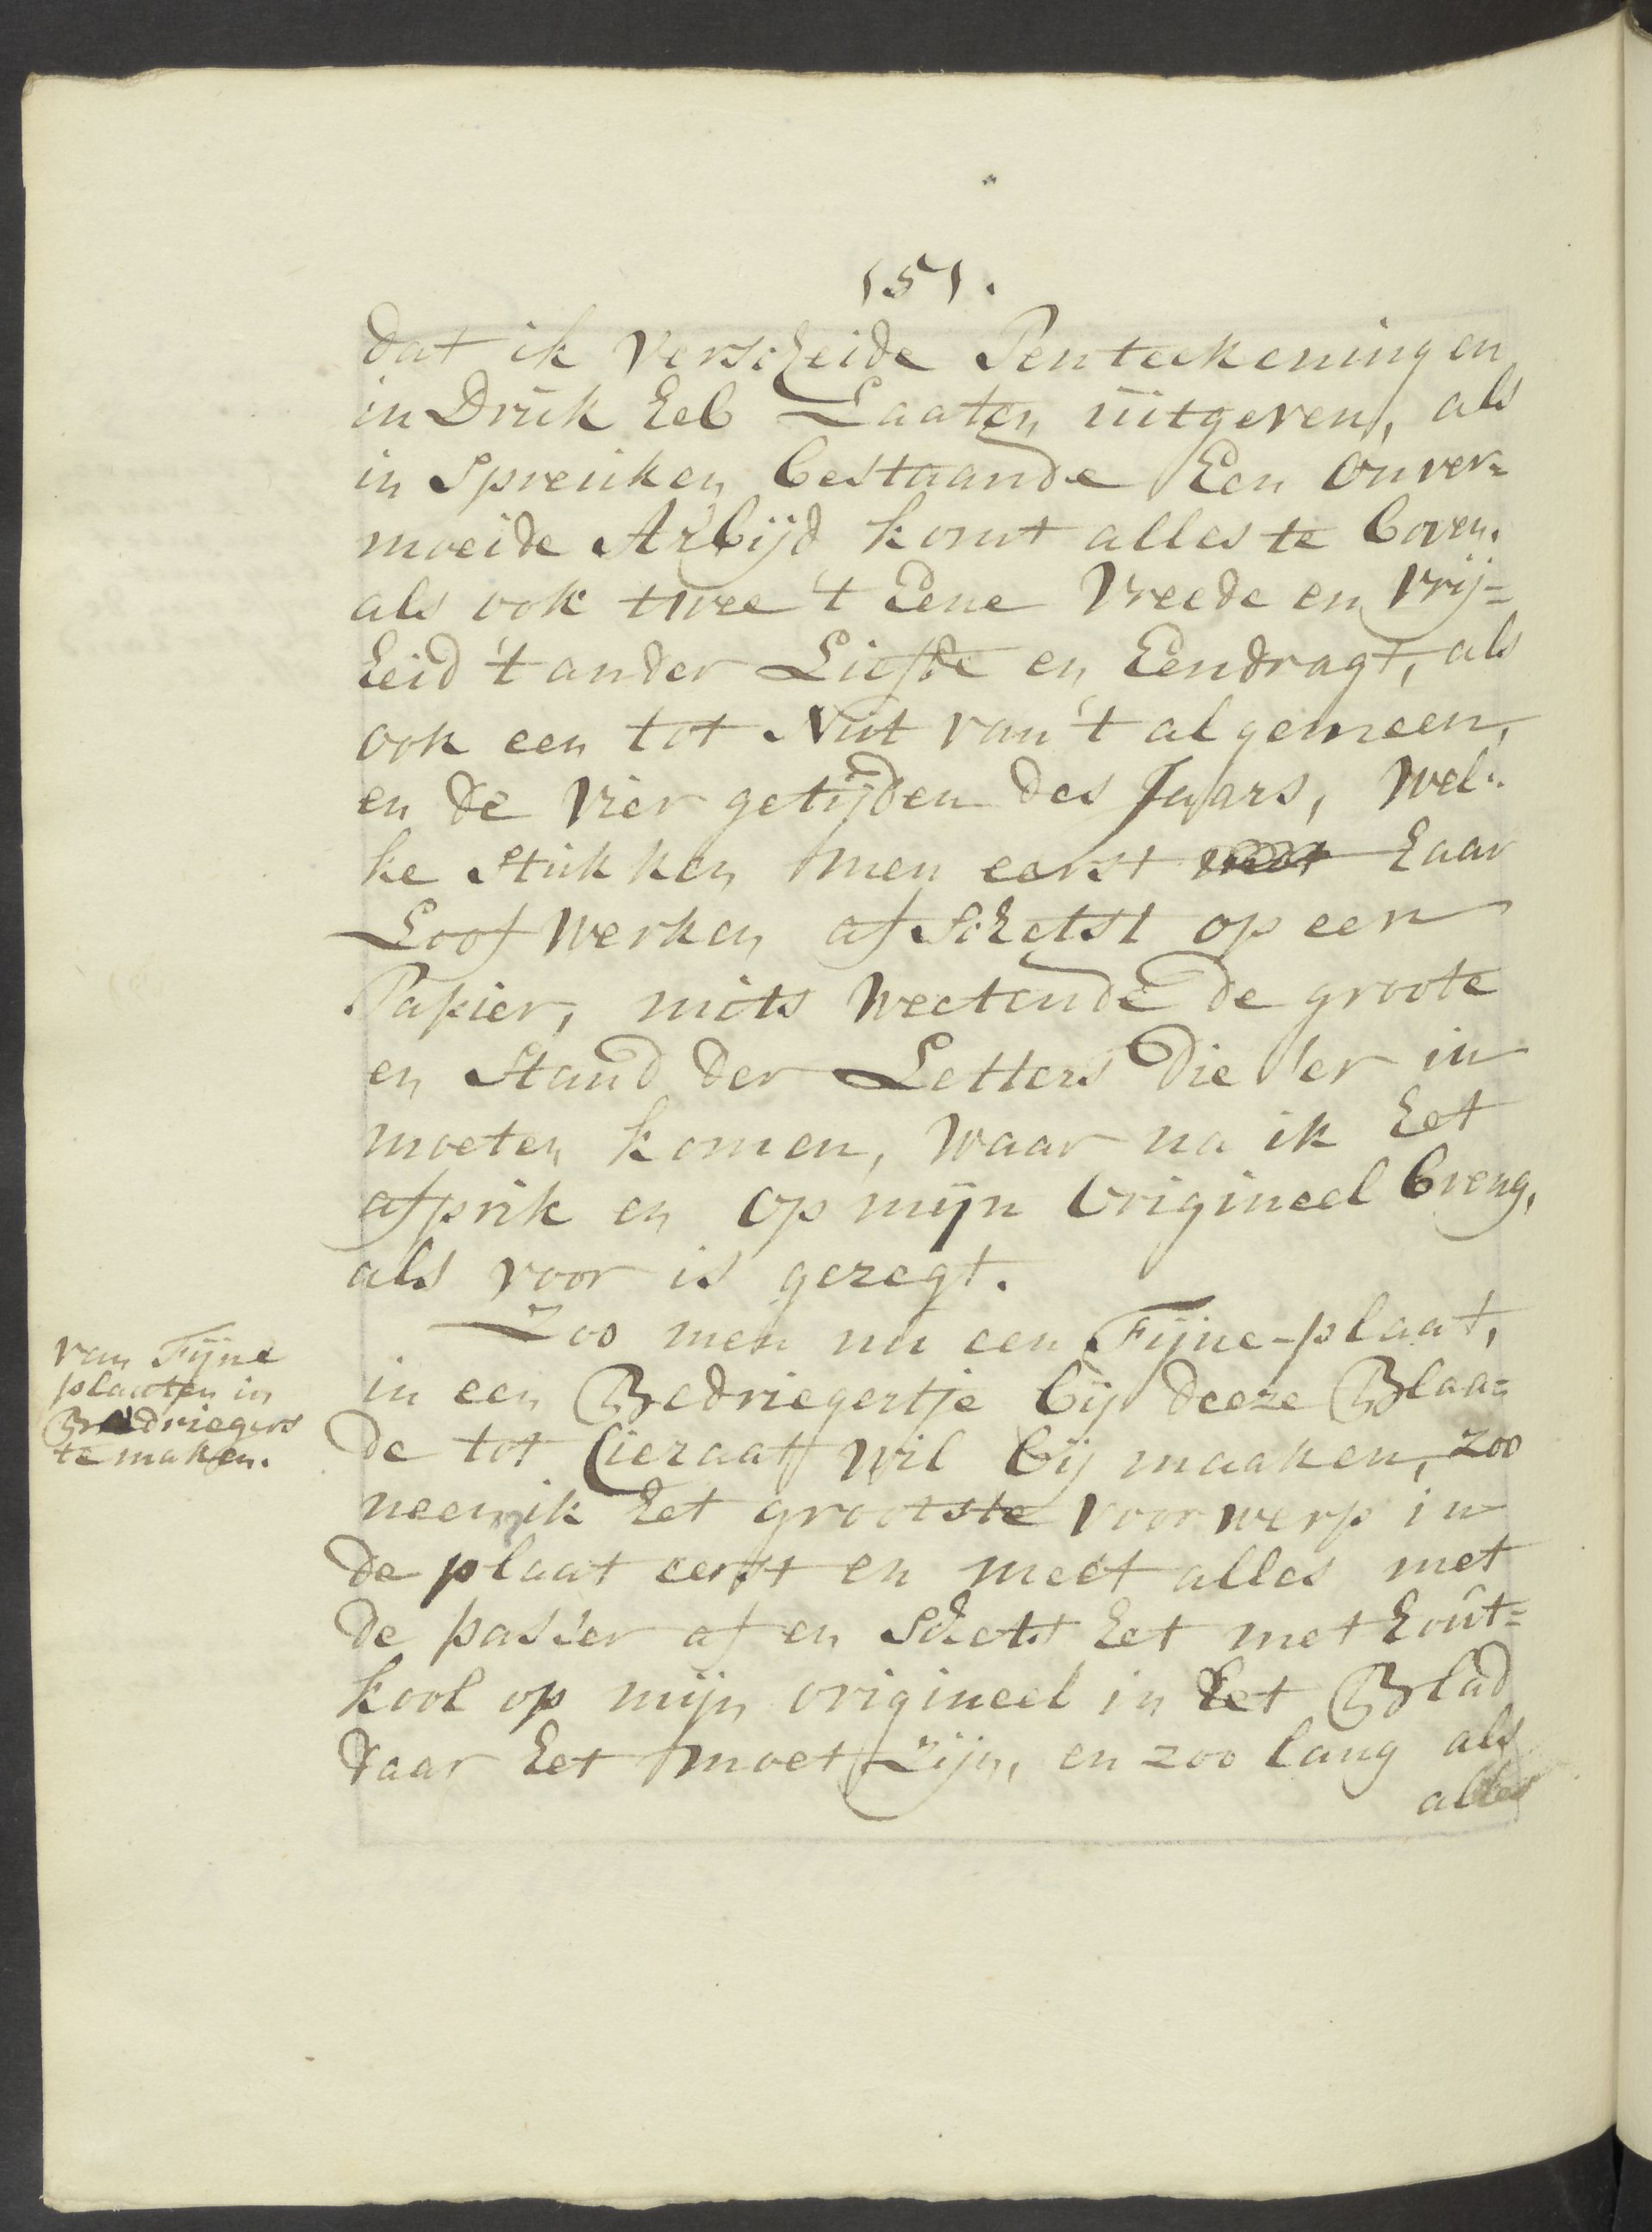 151.
dat ik verscheide Penteekeningen
in Druk heb Laaten uitgeven, als
in Spreuken bestaande Een onver=
moeide Arbijd komt alles te boven.
als ook twee 't Eene Vreede en Vrij=
heid 't ander Liefde en Eendragt, als
ook een tot Nut van 't algemeen,
en de vier getijden des Jaars, wel=
ke Stukken men eerst haar
Loof werken af schetst op een
Papier, mits weetende de groote
en Stand der Letters die 'er in
moeten komen, waar na ik het
afprik en op mijn Origineel breng,
als voor is gezegt.
Zoo men nu een Fijne-plaat,
in een Bedriegertje bij deeze Blaa=
de tot Cieraat wil bij maaken, zoo
neem ik het grootste voorwerp in
de plaat eerst en meet alles met
de passer af en schets het met hout=
kool op mijn origineel in het Blad
daar het moet zijn, en zoo lang als
alles
van Fijne
plaaten in
Bedriegers
te maken.